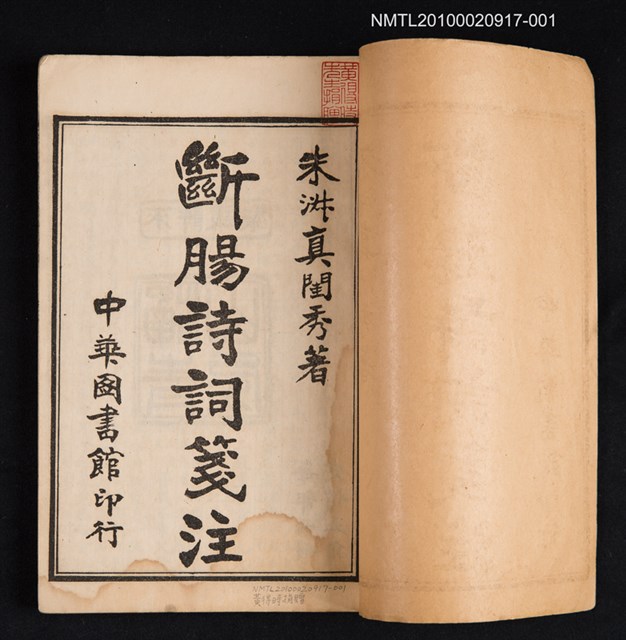 NMTL20100020917-001
朱淑真閨秀著
斷腸詩詞箋注
中華圖書館印行
NMTL20100020917-001
黃得時捐贈